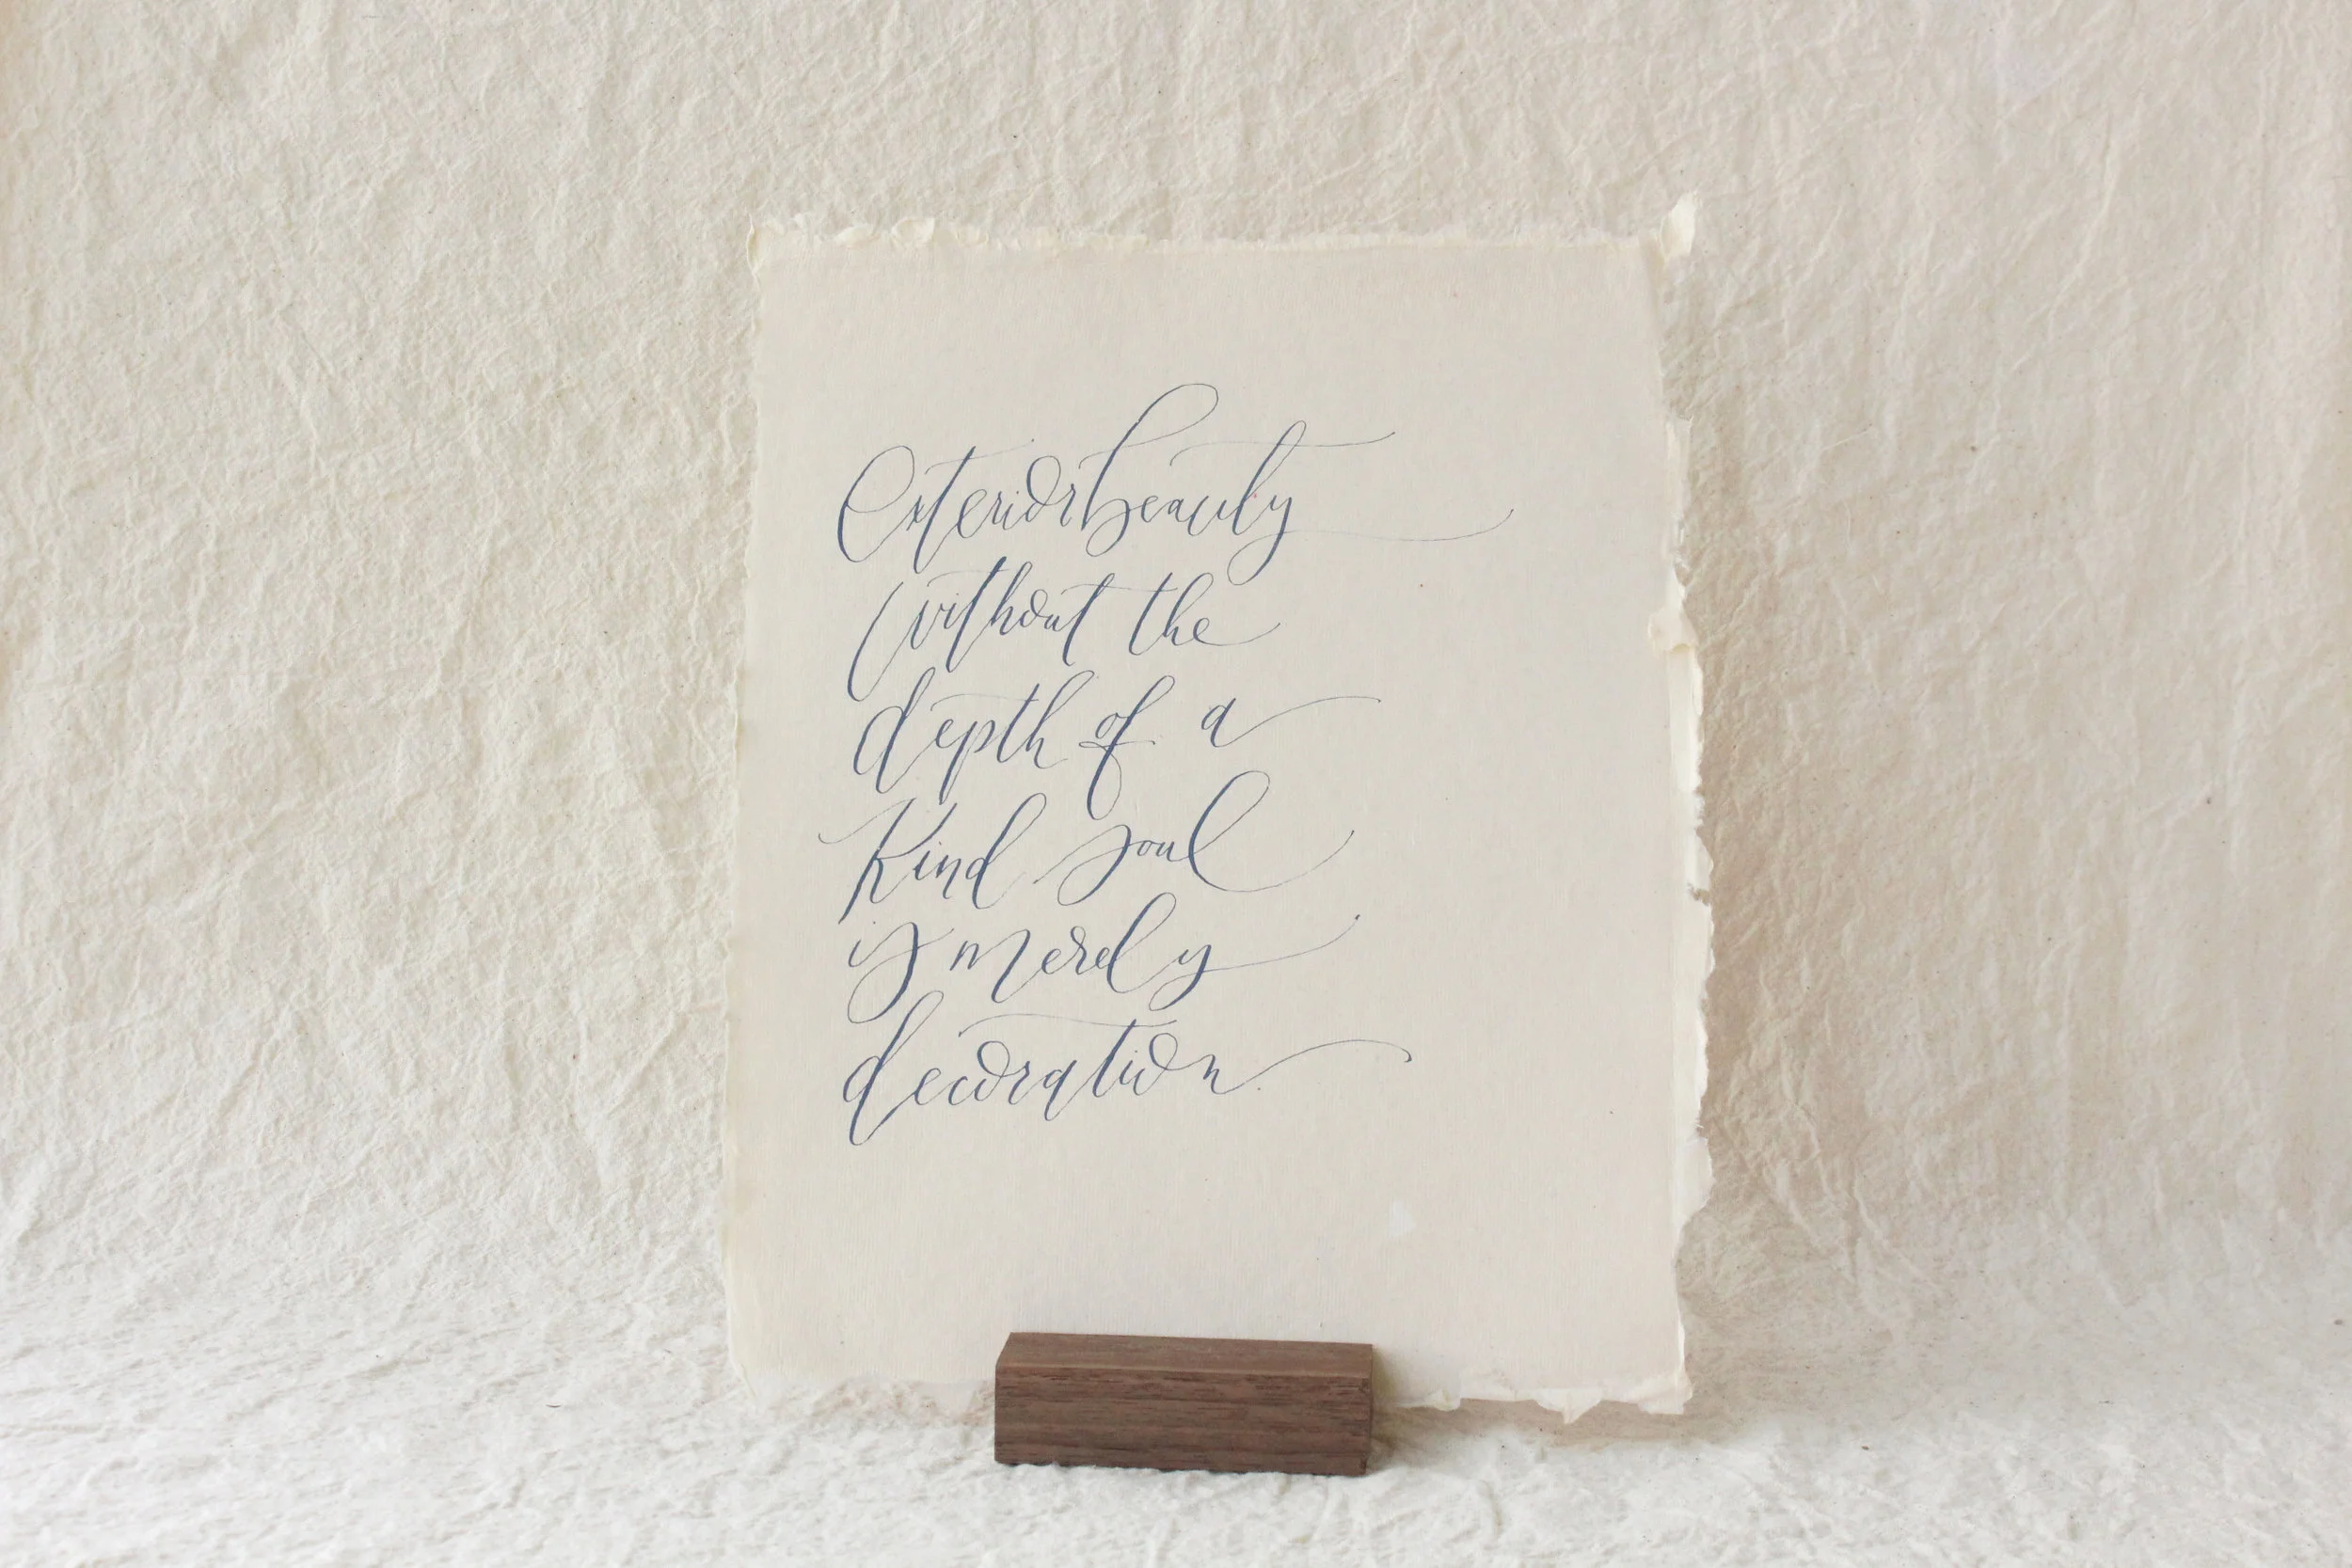 Exterior beauty
without the
depth of a
Kind soul
is merely
decoration.